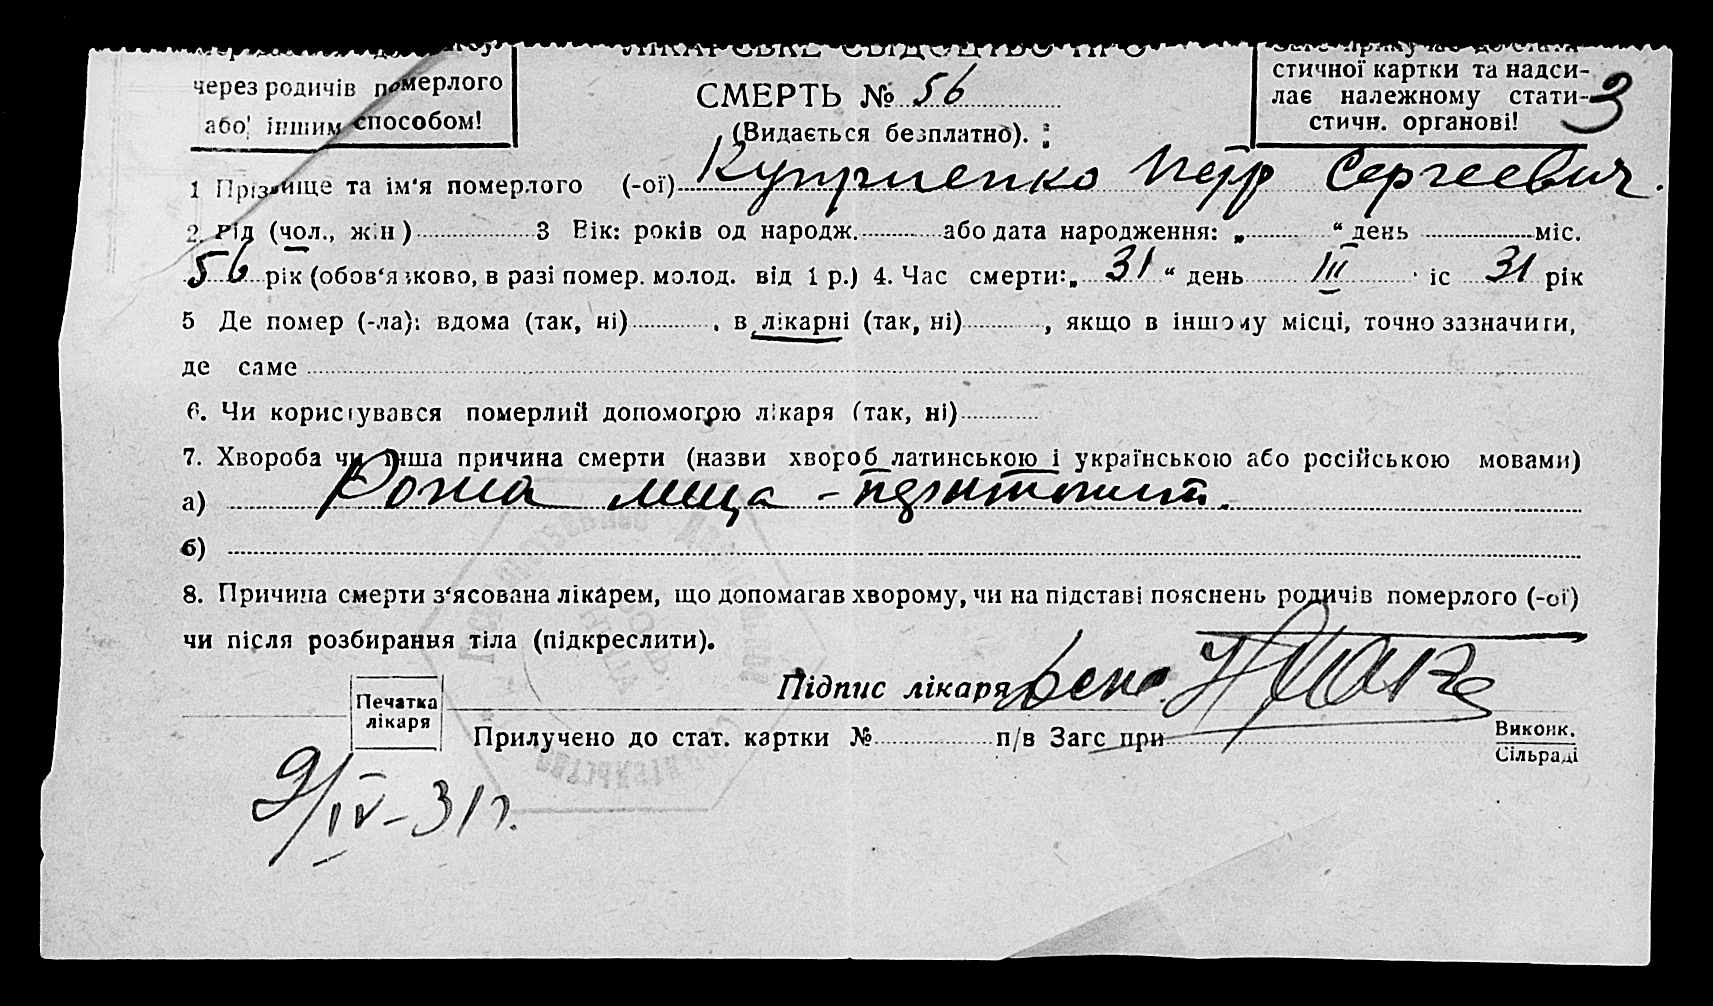 через родичів померлого
або іншим способом!
ЛІКАРСЬКЕ СВІДОЦТВО ПРО
СМЕРТЬ № 56
(Видається безплатно).
стичної картки та надси-
лає належному стати-
стичн. органові!
3
1 Прізвище та ім'я померлого (-ої) Куприенко Петр Сергеевич.
2. Рід (чол., жін) 3 Вік: років од народж. або дата народження: „ “ день міс.
56 рік (обов'язково, в разі помер. молод. від 1 р.) 4. Час смерти: „ 31 “ день III іс 31 рік
5 Де помер (-ла): вдома (так, ні) , в лікарні (так, ні) , якщо в іншому місці, точно зазначити,
де саме
6. Чи користувався померлий допомогою лікаря (так, ні)
7. Хвороба чи інша причина смерти (назви хвороб латинською і українською або російською мовами)
а) Рожа лица -
б)
8. Причина смерти з'ясована лікарем, що допомагав хворому, чи на підставі пояснень родичів померлого (-ої)
чи після розбирання тіла (підкреслити).
Підпис лікаря
Печатка
лікаря
Прилучено до стат. картки № п/в Загс при
Виконк.
Сільраді
9/IV-31 г.